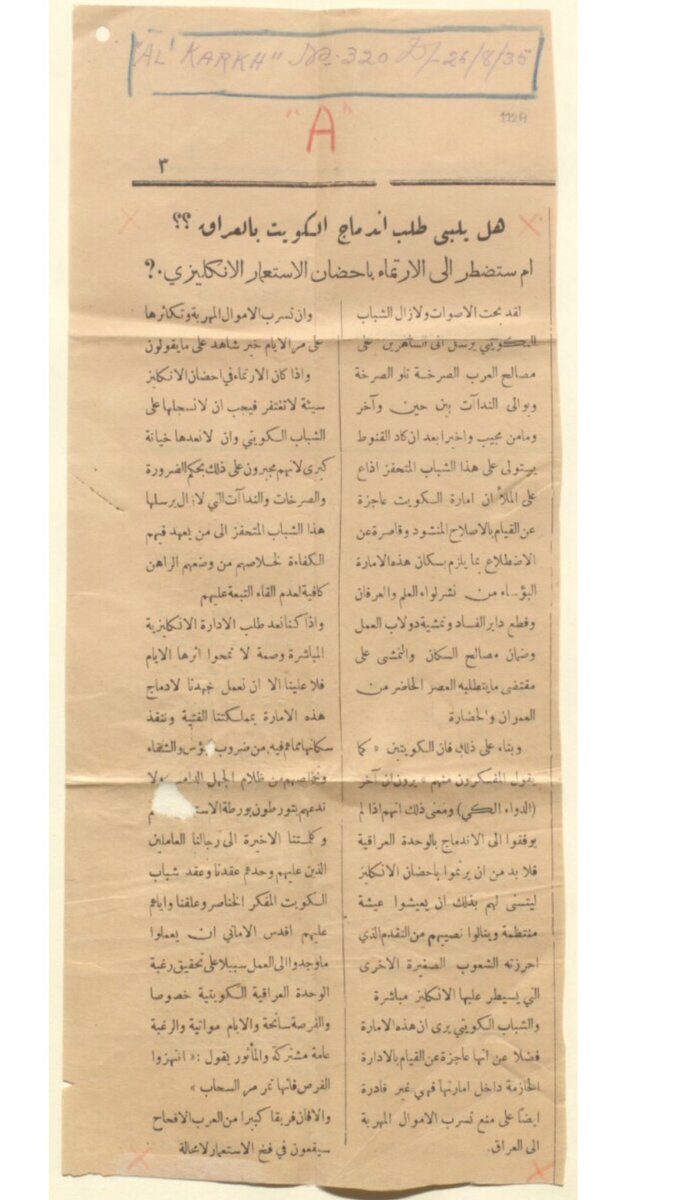 "AL' KARKH" No. 320 D/- 26/8/35
"A"
112A
٣
هل يلبى طلب اندماج الكويت بالعراق ؟؟
ام ستضطر الى الارتماء باحضان الاستعمار الانكليزي .؟
لقد بحت الاصوات ولازال الشباب
الكويتي يرسل الى الساهرين على
مصالح العرب الصرخة تلو الصرخة
ويوالى النداآت بين حين وآخر
ومامن مجيب واخيرا بعد ان كاد القنوط
يستولى على هذا الشباب المتحفز اذاع
على الملأ ان امارة الكويت عاجزة
عن القيام بالاصلاح المنشود وقاصرة عن
الاضطلاع بما يلزم سكان هذه الامارة
البؤساء من نشر لواء العلم والعرفان
وقطع دابر الفساد وتمشية دولاب العمل
وضمان مصالح السكان والتمشى على
مقتضى مايتطلبه العصر الحاضر من
العمران والحضارة
وبناء على ذلك فان الكويتين « كما
يقول المفكرون منهم » يرون ان آخر
(الدواء الكي) ومعنى ذلك انهم اذا لم
يوفقوا الى الاندماج بالوحدة العراقية
فلا بد من ان يرتموا باحضان الانكليز
ليتسنى لهم بذلك ان يعيشوا عيشة
منتظمة وينالوا نصيبهم من التقدم الذي
احرزته الشعوب الصغيرة الاخرى
التي يسيطر عليها الانكليز مباشرة
والشباب الكويتي يرى ان هذه الامارة
فضلا عن انها عاجزة عن القيام بالادارة
الحازمة داخل امارتها فهي غير قادرة
ايضا على منع تسرب الاموال المهربة
الى العراق.
وان تسرب الاموال المهربة وتكاثرها
على مر الايام خير شاهد على مايقولون
واذا كان الارتماء في احضان الانكليز
سيئة لاتغتفر فيجب ان لانسجلها على
الشباب الكويتي وان لانعدها خيانة
كبرى لانهم مجبرون على ذلك بحكم الضرورة
والصرخات والنداآت التي لازال يرسلها
هذا الشباب المتحفز الى من يعهد فيهم
الكفاءة لخلاصهم من وضعهم الراهن
كافية لعدم القاء التبعة عليهم
واذا كنا نعد طلب الادارة الانكليزية
المباشرة وصمة لا تمحوا اثرها الايام
فلا علينا الا ان نعمل جهدنا لادماج
هذه الامارة بمملكتنا الفتية وننقذ
سكانها مماهم فيه من ضروب البؤس والشقاء
ونخلصهم من ظلام الجهل الدامس ولا
ندعهم يتورطون بورطة
وكلمتنا الاخيرة الى رجالنا العاملين
الذين عليهم وحدهم عقدنا وعقد شباب
الكويت المفكر الخناصر وعلقنا واياهم
عليهم اقدس الاماني ان يعملوا
ماوجدوا الى العمل سبيلا على تحقيق رغبة
الوحدة العراقية الكويتية خصوصا
والفرصة سانحة والايام مواتية والرغبة
عامة مشتركة والمأثور يقول : « انتهزوا
الفرص فانها تمر مر السحاب »
والافان فريقا كبيرا من العرب الاقحاح
سيقعون في فخ الاستعمار لامحالة